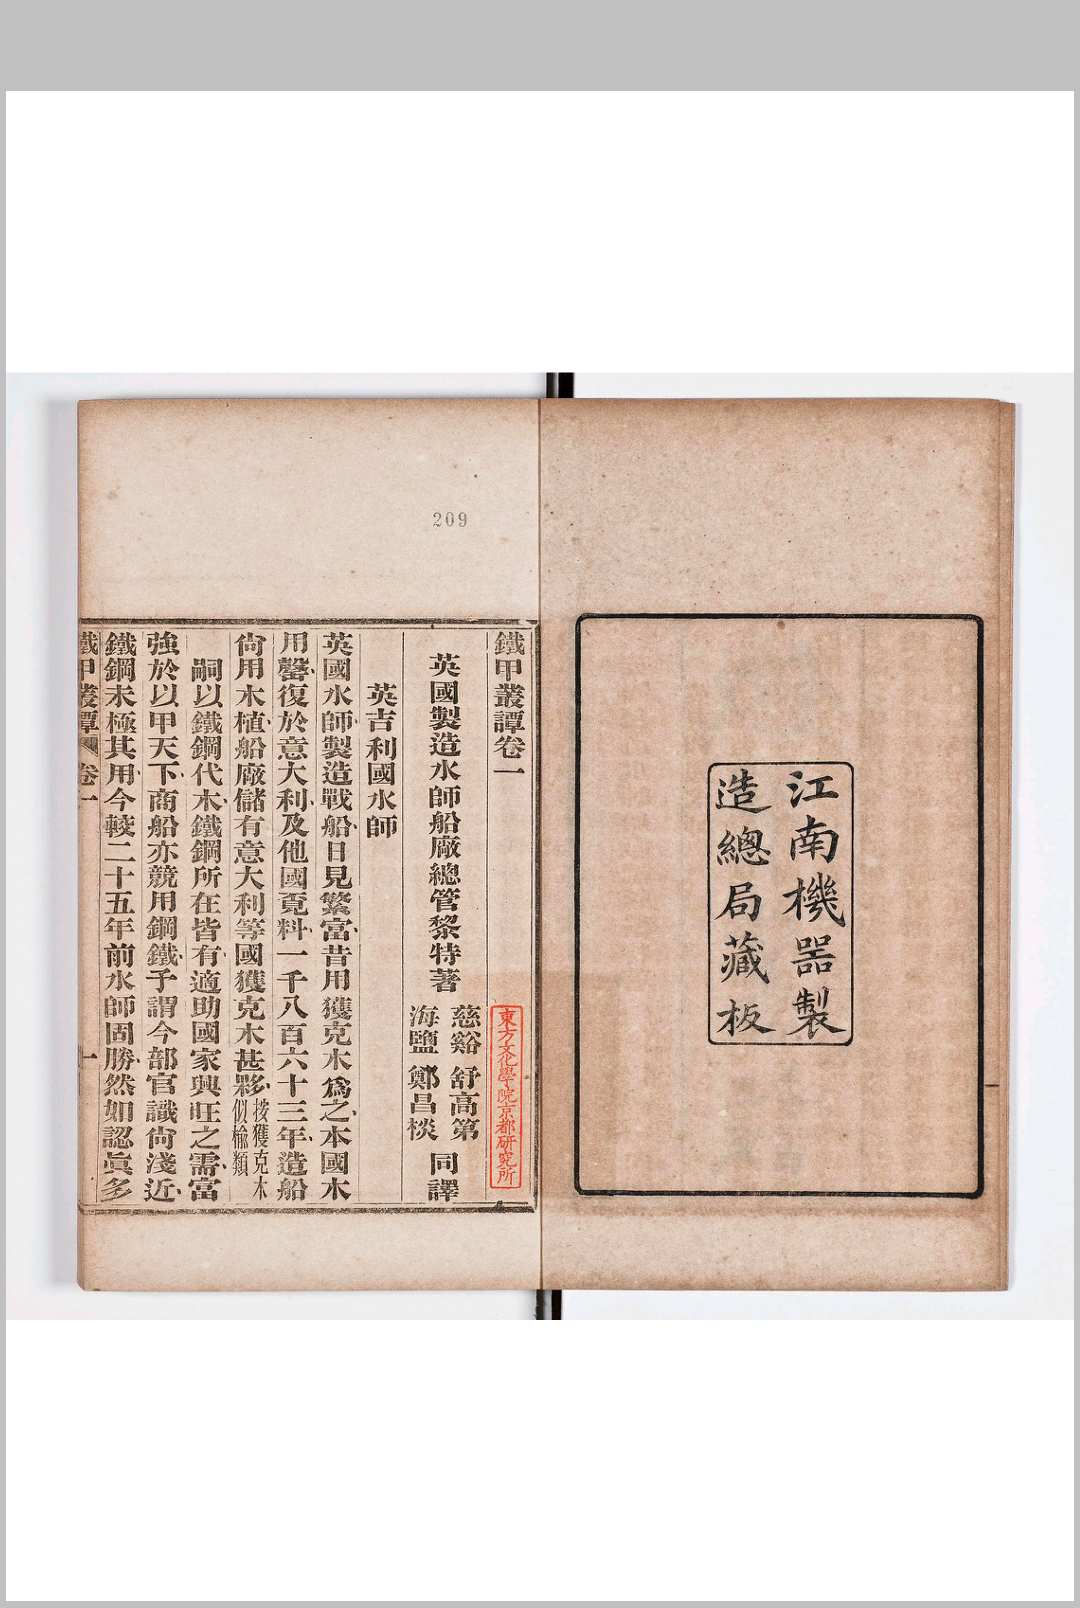 江南機器製
造總局藏板
209
鐵甲叢譚卷一
英國製造水師船廠總管黎特著
慈谿 舒高第
海鹽 鄭昌棪
同譯
東方文化學院京都研究所
英吉利國水師
英國水師製造戰船日見繁富昔用獲克木爲之本國木
用罄復於意大利及他國覔料一千八百六十三年造船
尙用木植船廠儲有意大利等國獲克木甚夥按獲克木似楡類
嗣以鐵鋼代木鐵鋼所在皆有適助國家興旺之需富
強於以甲天下商船亦競用鋼鐵予謂今部官識尙淺近
鐵鋼未極其用今較二十五年前水師固勝然如認眞多
鐵甲叢譚 卷一
一